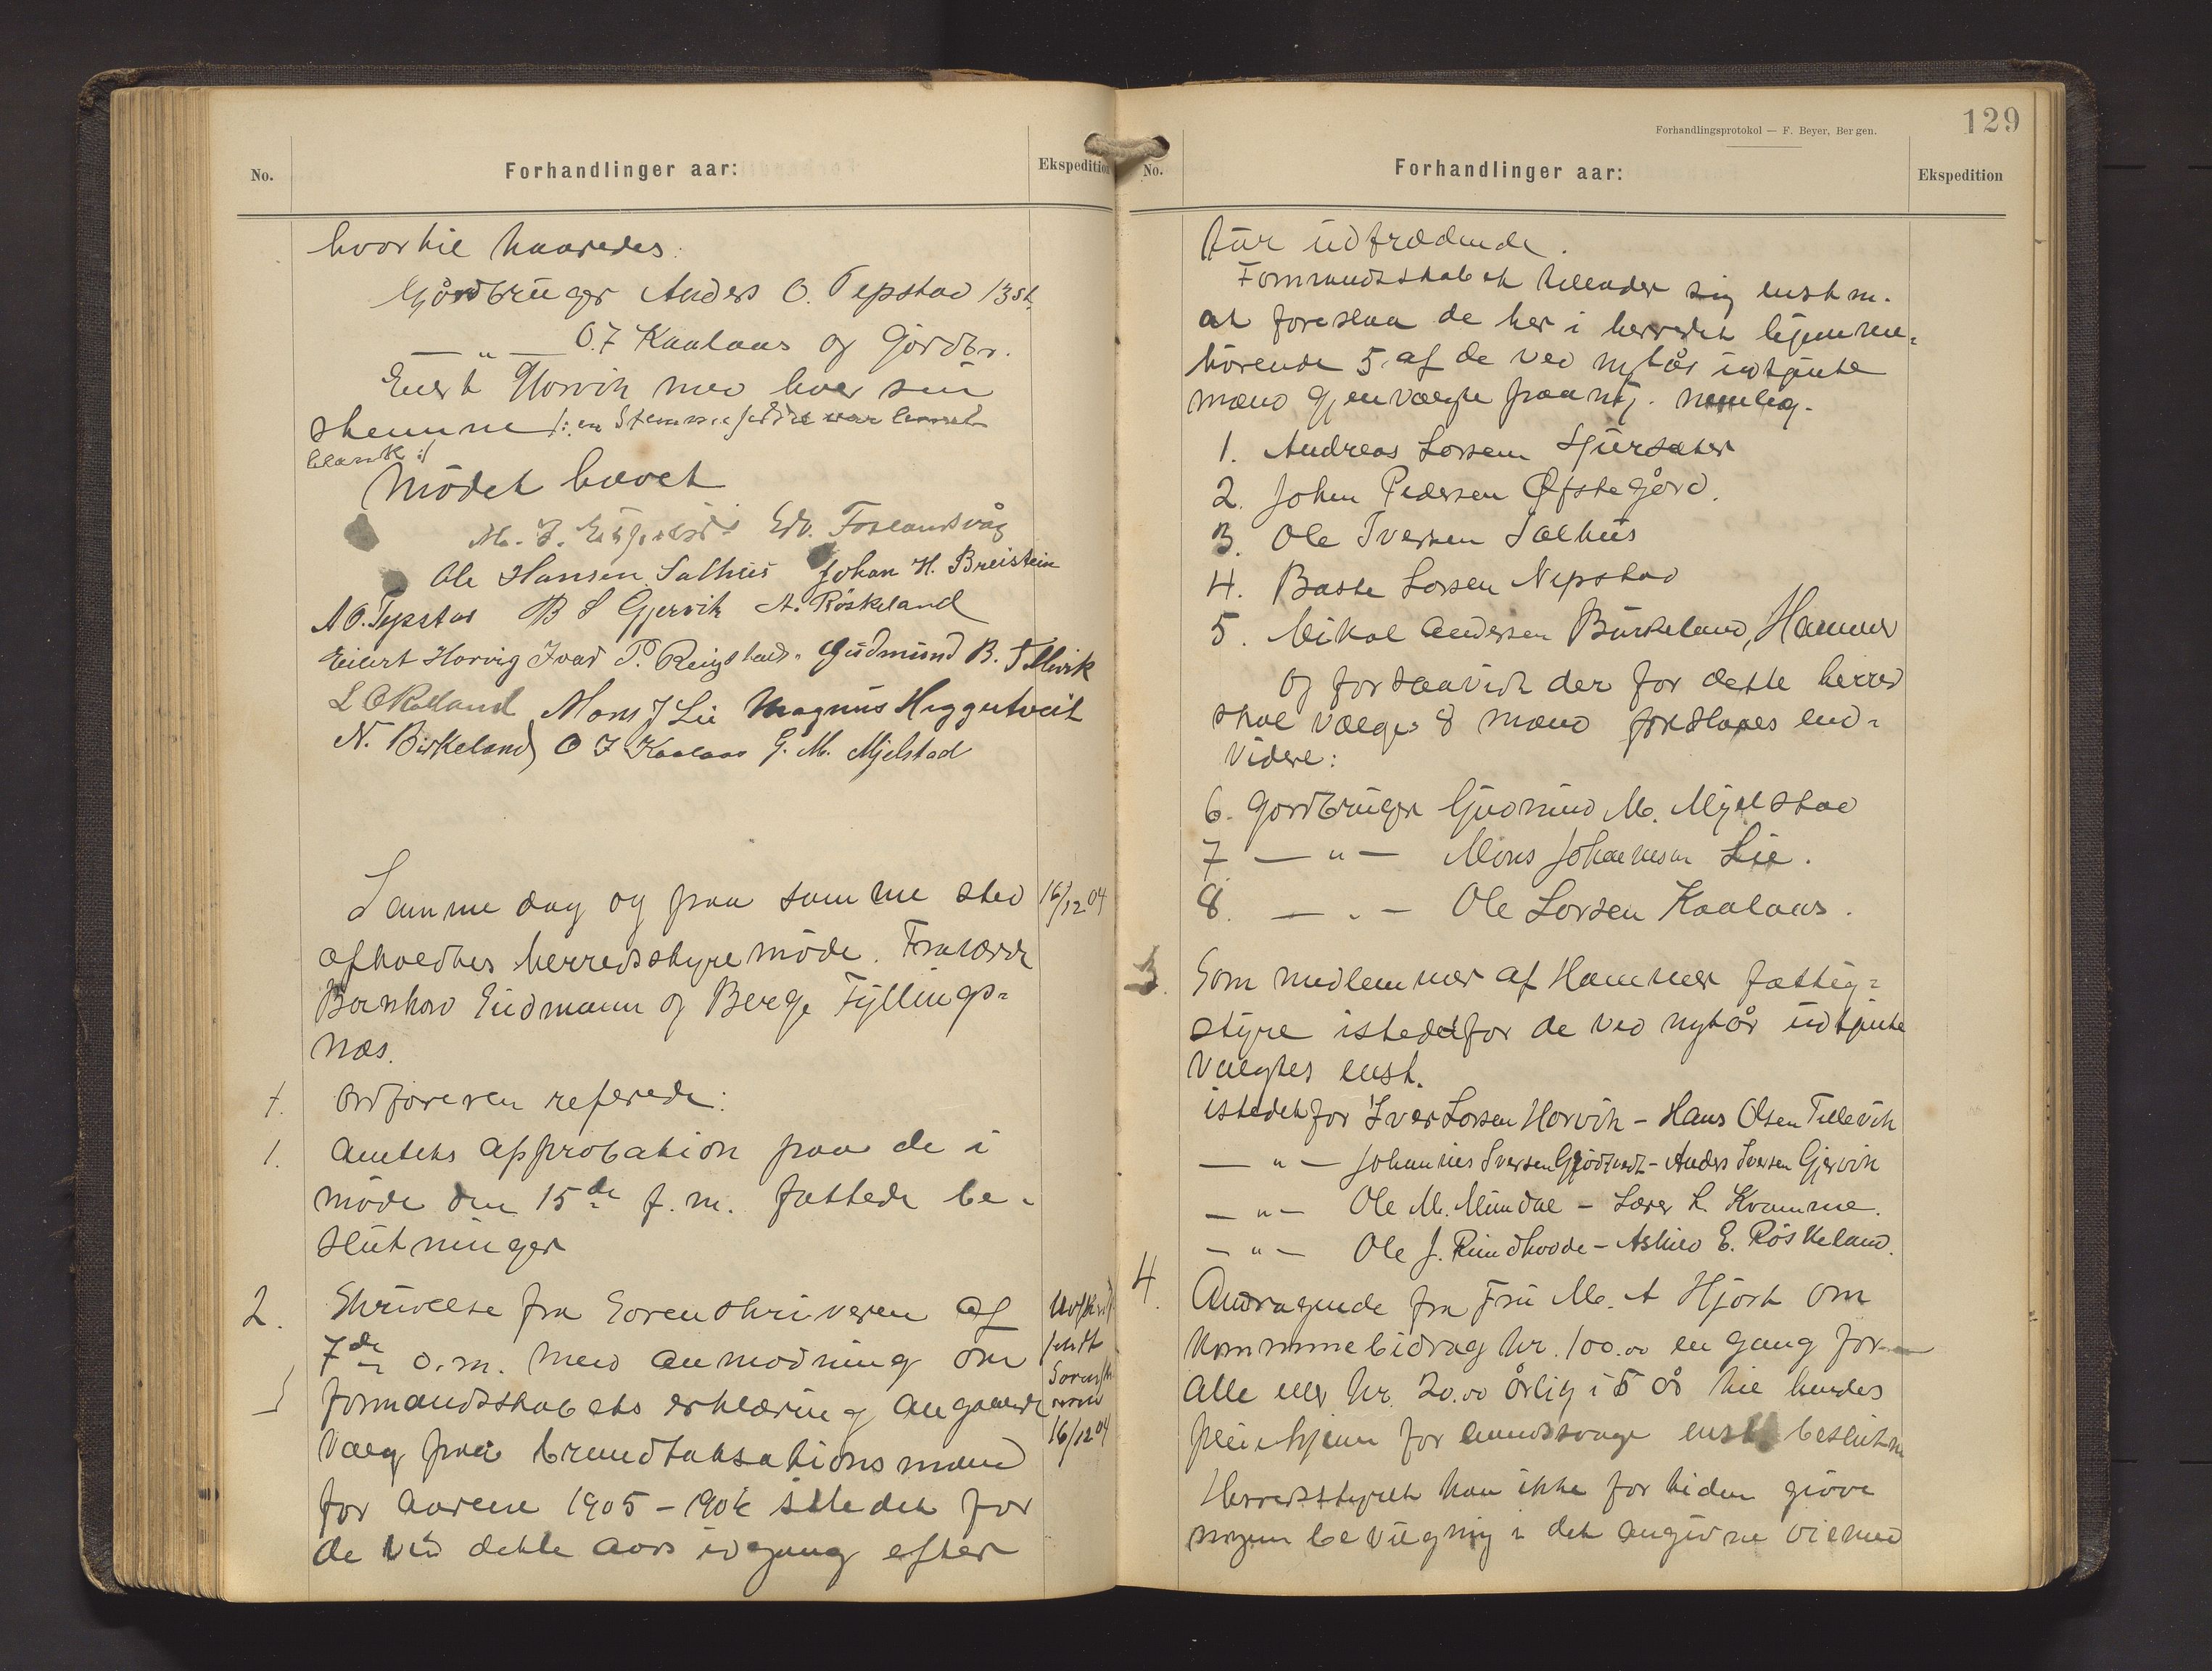 No.
Forhandlinger aar:
Ekspedition
hvortil kaaredes:
Gårdbruger Anders O. Tepstad 13 st.
— " — O. J Kaalaas og Gårdbr.
Eiert Horvik med hver sin
stemme /: en Stemmeseddel var levret
blank :/
Mødet hævet
Edv. Foslandsvåg
Ole Hansen Salhus Johan H. Breistein
A O. Tepstad B S Gjervik A. Röskeland
Eilert Horvig Ivar P. Reigstad. Gudmund B. Tellevik
L O Rolland Mons J Lie Magnus Heggertveit
N. Birkeland O J Kaalaas G. M. Mjelstad
Samme dag og paa samme sted 16/12 04
afholdtes herredsstyremöde. Fraværende
Eidmann og Berge Fyllings-
næs.
1. Ordføreren referede:
1. Amtets approbation paa de i
möde den 15de f. m. fattede be-
slutninger
2. Skrivelse fra Sorenskriveren af
7de d. m. med anmodning om
formandsskabets erklæring angaaende
valg paa brandtaksationsmænd
for aarene 1905 - 1906 istedet for
de ved dette aars udgang efter
Udskrift
sendt
Sorensk
16/12 04
Forhandlingsprotokol — F. Beyer, Bergen.
129
No.
Forhandlinger aar:
Ekspedition
tur udtrædende.
Formandsskabet tillader sig enstm.
at foreslaa de her i herredet hjemme-
hörende 5 af de ved nytår udtjente
mænd gjenvalgte paa nyt. nemlig.
1. Andreas Larsen Hjursæter
2. Johan Pedersen Øfstegård.
3. Ole Iversen Salhus
4. Baste Larsen Nepstad
5. Nikol Andersen Birkeland, Hammer
Og forsaavidt der for dette herred
skal vælges 8 mænd foreslaaes end-
videre:
6. Gardbruger Gudmund M. Mjelstad
7 — " — Mons Johannesen Lie.
8. — " — Ole Larsen Kaalaas.
3. Som medlemmer af Hammer fattig-
styre istedetfor de ved nytår udtjente
valgtes enst.
istedetfor Iver Larsen Horvik - Hans Olsen Tellevik
— " — Johannes Iversen Gjødtvedt - Anders Iversen Gjervik
— " — Ole M. Mundal - Lærer L. Kvamme.
— " — Ole J. Rundhovde - Askild E. Röskeland.
4. Andragende fra Fru M. A Hjort om
kommunebidrag kr. 100.00 en gang for
alle eller kr. 20.00 årlig i 5 år til hendes
pleiehjem for åndssvage enst. besluttet
Herredsstyret kan ikke for tiden gjøre
nogen bevilgning i det angivne öiemed